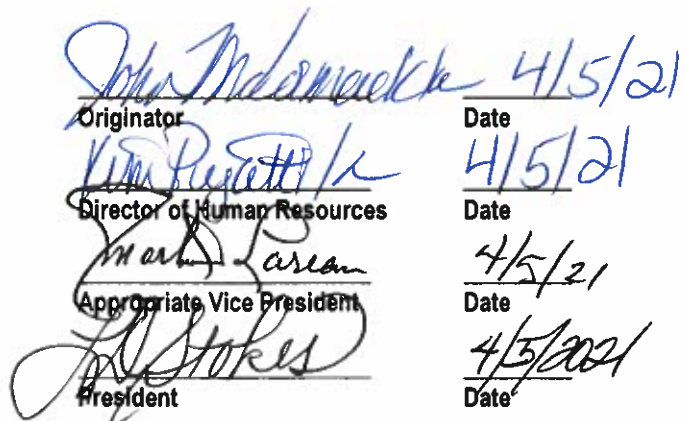 John McCormack/k 4/5/21
Originator Date
Kim 4/5/21
Director of Human Resources Date
Mark 4/5/21
Appropriate Vice President Date
Stokes 4/5/2021
President Date